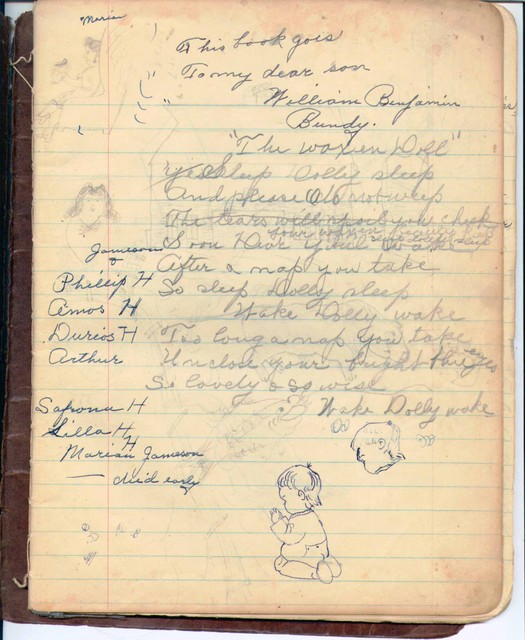 Marian
This book gois
To my dear son
William Benjamin
Bundy.
"The waxen Doll"
Yes Sleep Dolly sleep
And please do not weep
The tears will spoil your cheek
Soon Have your
After a nap you take
So sleep Dolly sleep
Wake Dolly wake
Too long a nap you take
Unclose your bright eyes
So lovely & so wise
Wake Dolly wake
Jameson
Phillip H
Amos H
Durios H
Arthur
Safrona H
Lilla H
Marian Jameson
died early